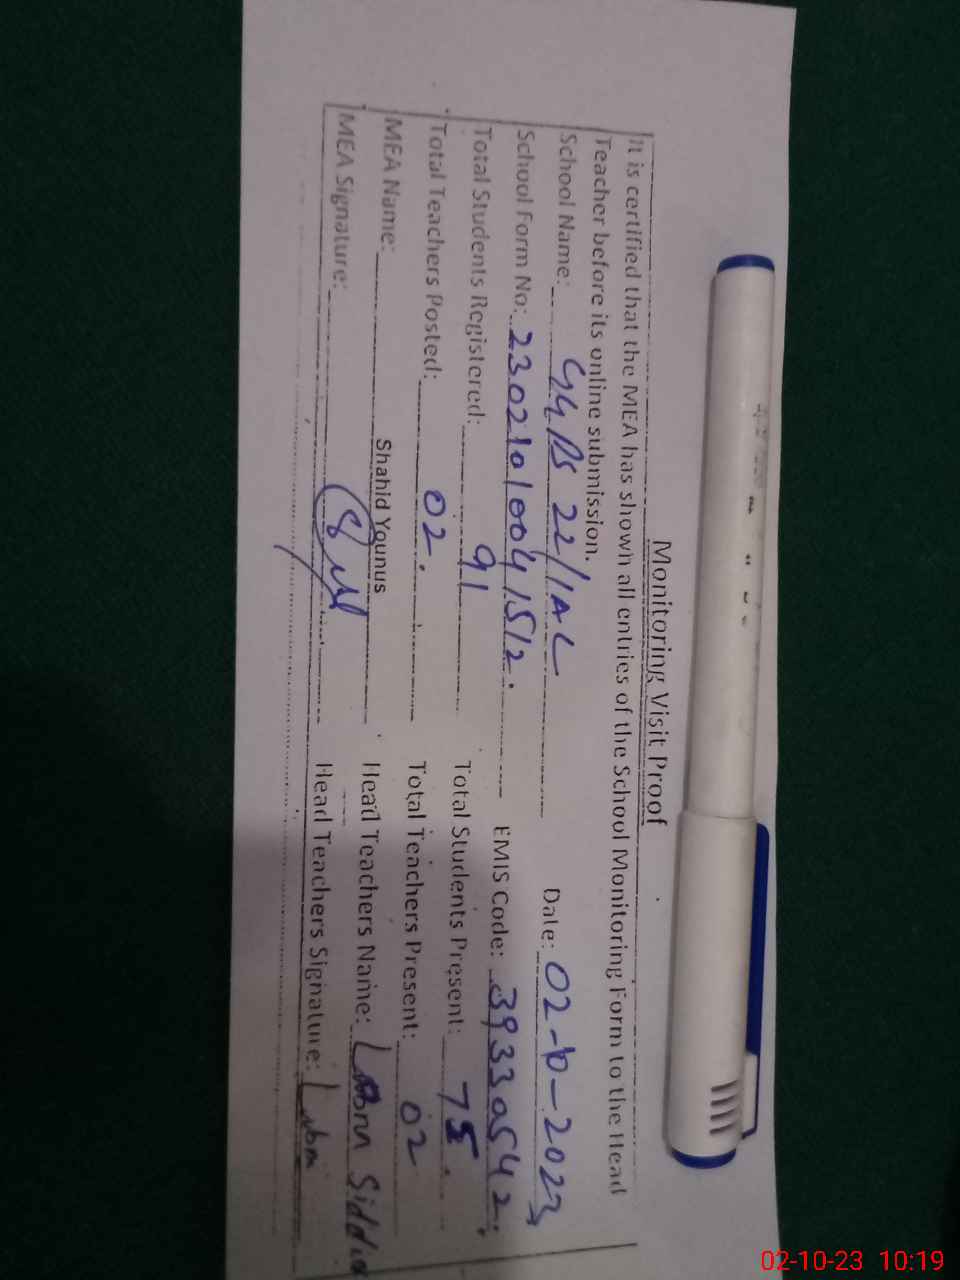 Monitoring Visit Proof
It is certified that the MEA has shown all entries of the School Monitoring Form to the Head
Teacher before its online submission.
School Name: GGPS 22/1AL Date: 02-10-2023
School Form No: 23021010041512. EMIS Code: 39330542.
Total Students Registered: 91 Total Students Present: 75.
Total Teachers Posted: 02. Total Teachers Present: 02
MEA Name: Shahid Younus Head Teachers Name:
MEA Signature: Head Teachers Signature:
02-10-23 10:19